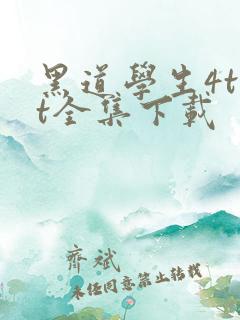 黑道學生4t
t全集下載
齊斌
未經同意禁止轉載